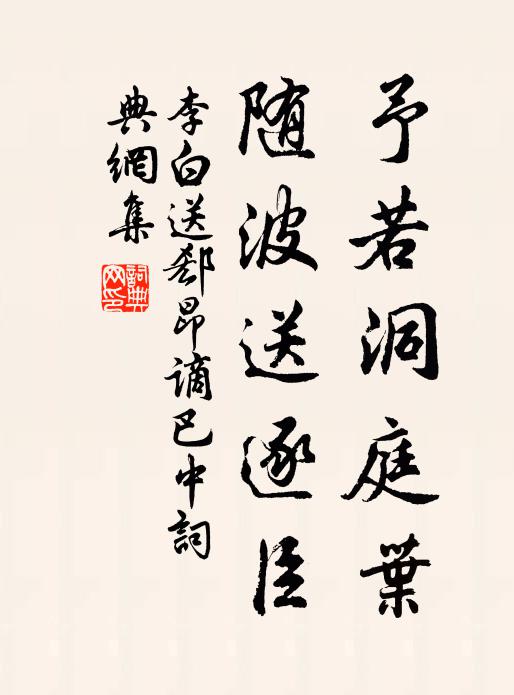 予若洞庭葉
随波送逐臣
李白送郄昂謫巴中詞
典網集
詞典
网印